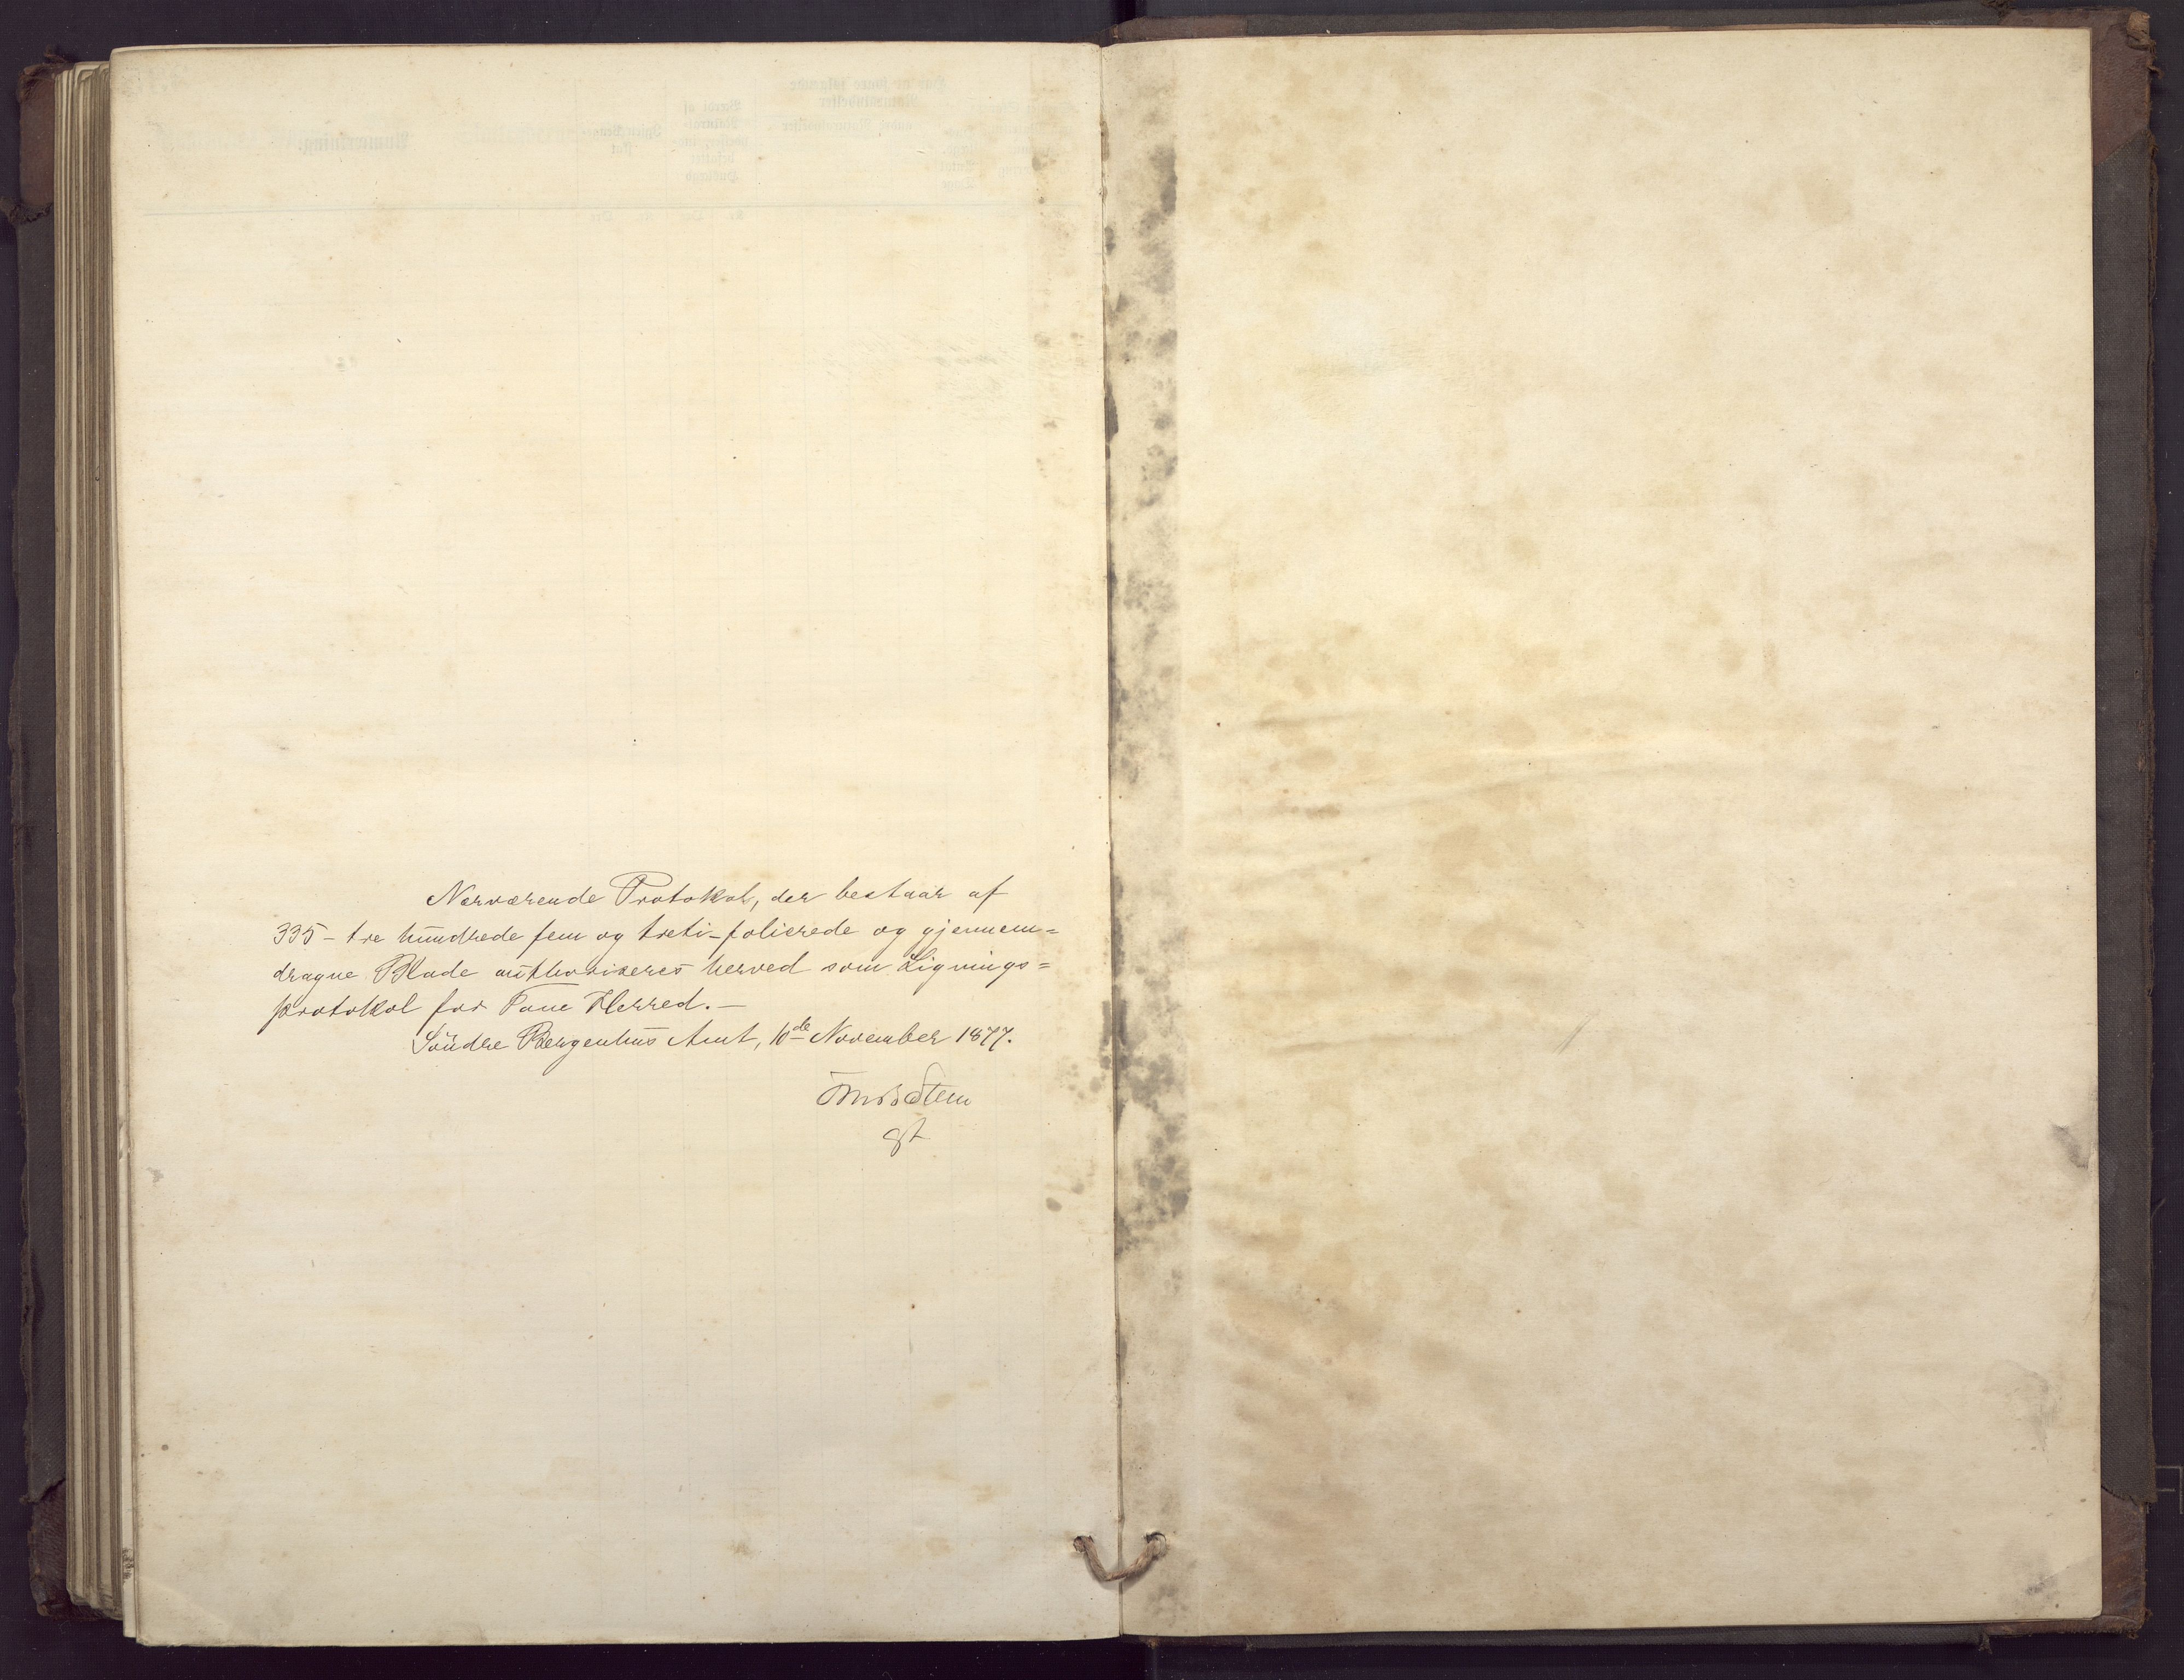 Nærværende Protokol, der bestaar af
335 - tre hundrede fem og treti - folierede og gjennem=
dragne Blade authoriseres herved som Lignings=
protokol for Fane Herred. -
Söndre Bergenhus Amt, 10de November 1877.
Stem
gt
Anmerkning.